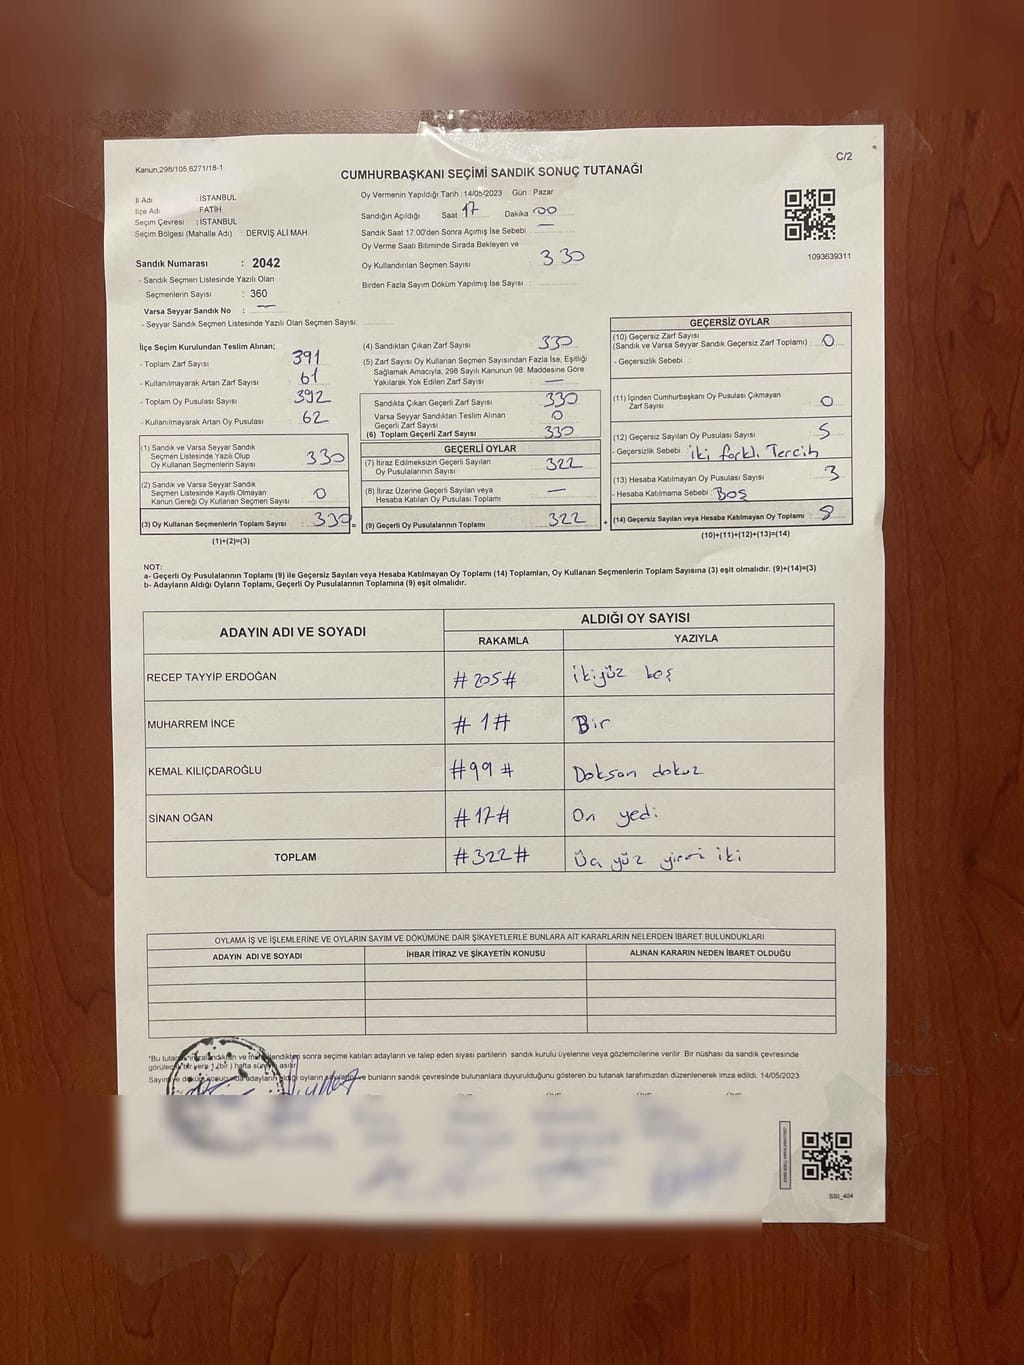 Kanun:298/105,6271/18-1
C/2
CUMHURBAŞKANI SEÇİMİ SANDIK SONUÇ TUTANAĞI
İl Adı : İSTANBUL
İlçe Adı : FATİH
Seçim Çevresi : İSTANBUL
Seçim Bölgesi (Mahalle Adı) : DERVİŞ ALİ MAH.
Sandık Numarası : 2042
- Sandık Seçmen Listesinde Yazılı Olan
Seçmenlerin Sayısı : 360
Varsa Seyyar Sandık No : —
- Seyyar Sandık Seçmen Listesinde Yazılı Olan Seçmen Sayısı:
Oy Vermenin Yapıldığı Tarih : 14/05/2023 Gün : Pazar
Sandığın Açıldığı Saat 17 Dakika 00
Sandık Saat 17:00'den Sonra Açımış İse Sebebi —
Oy Verme Saati Bitiminde Sırada Bekleyen ve
Oy Kullandırılan Seçmen Sayısı : 330
Birden Fazla Sayım Döküm Yapılmış İse Sayısı :
1093639311
İlçe Seçim Kurulundan Teslim Alınan;
- Toplam Zarf Sayısı : 391
- Kullanılmayarak Artan Zarf Sayısı : 61
- Toplam Oy Pusulası Sayısı : 392
- Kullanılmayarak Artan Oy Pusulası : 62
(1) Sandık ve Varsa Seyyar Sandık
Seçmen Listesinde Yazılı Olup
Oy Kullanan Seçmenlerin Sayısı : 330
(2) Sandık ve Varsa Seyyar Sandık
Seçmen Listesinde Kayıtlı Olmayan
Kanun Gereği Oy Kullanan Seçmen Sayısı : 0
(3) Oy Kullanan Seçmenlerin Toplam Sayısı : 330 =
(1)+(2)=(3)
(4) Sandıktan Çıkan Zarf Sayısı : 330
(5) Zarf Sayısı Oy Kullanan Seçmen Sayısından Fazla İse, Eşitliği
Sağlamak Amacıyla, 298 Sayılı Kanunun 98. Maddesine Göre
Yakılarak Yok Edilen Zarf Sayısı : —
Sandıkta Çıkan Geçerli Zarf Sayısı : 330
Varsa Seyyar Sandıktan Teslim Alınan
Geçerli Zarf Sayısı : 0
(6) Toplam Geçerli Zarf Sayısı : 330
GEÇERLİ OYLAR
(7) İtiraz Edilmeksizin Geçerli Sayılan
Oy Pusulalarının Sayısı : 322
(8) İtiraz Üzerine Geçerli Sayılan veya
Hesaba Katılan Oy Pusulası Toplamı : —
(9) Geçerli Oy Pusulalarının Toplamı : 322 +
GEÇERSİZ OYLAR
(10) Geçersiz Zarf Sayısı
(Sandık ve Varsa Seyyar Sandık Geçersiz Zarf Toplamı) : 0
- Geçersizlik Sebebi :
(11) İçinden Cumhurbaşkanı Oy Pusulası Çıkmayan
Zarf Sayısı : 0
(12) Geçersiz Sayılan Oy Pusulası Sayısı : 5
- Geçersizlik Sebebi : iki farklı Tercih
(13) Hesaba Katılmayan Oy Pusulası Sayısı : 3
- Hesaba Katılmama Sebebi : Boş
(14) Geçersiz Sayılan veya Hesaba Katılmayan Oy Toplamı : 8
(10)+(11)+(12)+(13)=(14)
NOT:
a- Geçerli Oy Pusulalarının Toplamı (9) ile Geçersiz Sayılan veya Hesaba Katılmayan Oy Toplamı (14) Toplamları, Oy Kullanan Seçmenlerin Toplam Sayısına (3) eşit olmalıdır. (9)+(14)=(3)
b- Adayların Aldığı Oyların Toplamı, Geçerli Oy Pusulalarının Toplamına (9) eşit olmalıdır.
ADAYIN ADI VE SOYADI ALDIĞI OY SAYISI
RAKAMLA YAZIYLA
RECEP TAYYİP ERDOĞAN #205# ikiyüz beş
MUHARREM İNCE #1# Bir
KEMAL KILIÇDAROĞLU #99# Doksan dokuz
SİNAN OĞAN #17# On yedi
TOPLAM #322# Üç yüz yirmi iki
OYLAMA İŞ VE İŞLEMLERİNE VE OYLARIN SAYIM VE DÖKÜMÜNE DAİR ŞİKAYETLERLE BUNLARA AİT KARARLARIN NELERDEN İBARET BULUNDUKLARI
ADAYIN ADI VE SOYADI İHBAR İTİRAZ VE ŞİKAYETİN KONUSU ALINAN KARARIN NEDEN İBARET OLDUĞU
sonra seçime katılan adayların ve talep eden siyasi partilerin sandık kurulu üyelerine veya gözlemcilerine verilir. Bir nüshası da sandık çevresinde
hafta süreyle asılır.
bunların sandık çevresinde bulunanlara duyurulduğunu gösteren bu tutanak tarafımızdan düzenlenerek imza edildi. 14/05/2023
SSI_404